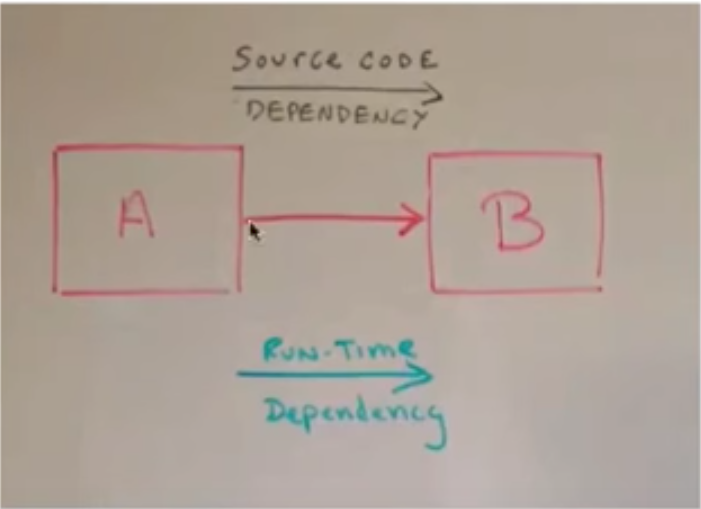 Source CODE
DEPENDENCY
A
B
RUN-Time
Dependency